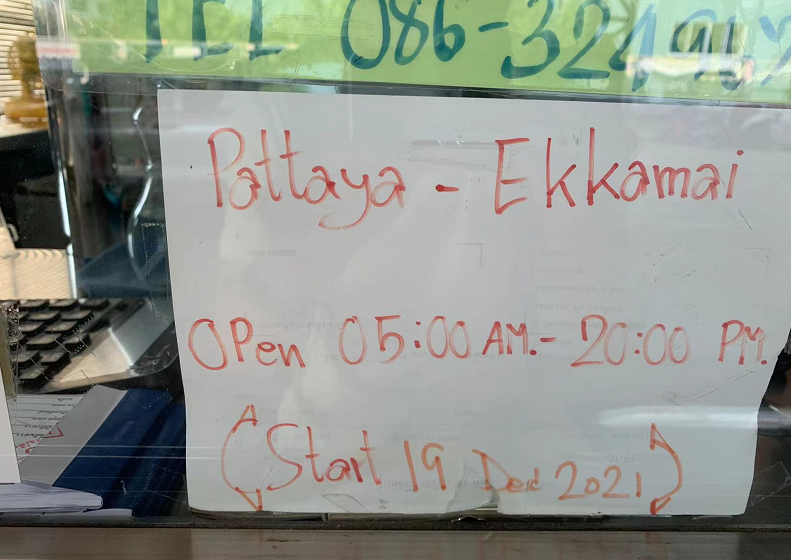 TEL 086-324
Pattaya - Ekkamai
OPen 05:00 AM.- 20:00 PM.
Start 19 Dec 2021